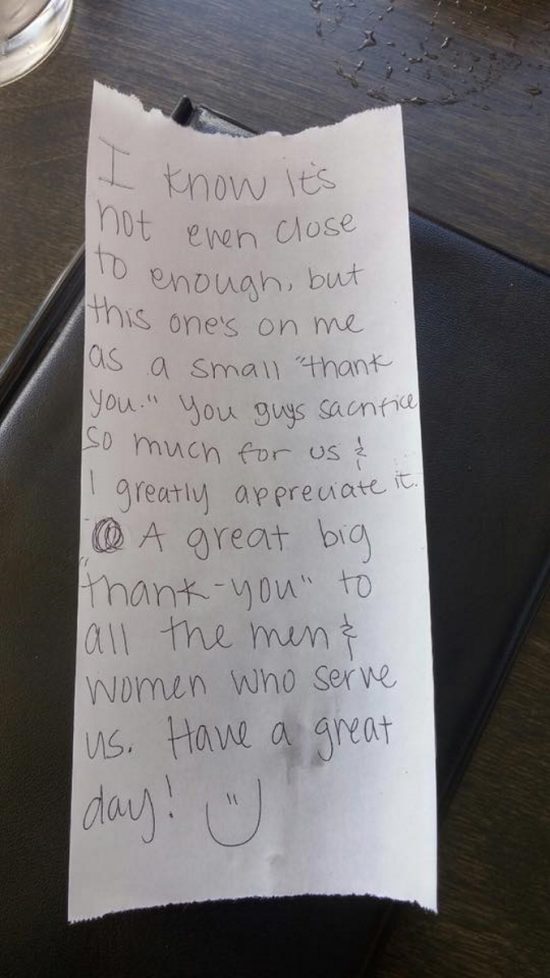 I know it's
not even close
to enough, but
this one's on me
as a small "thank
you." You guys sacrifice
so much for us &
I greatly appreciate it.
A great big
"thank-you" to
all the men &
women who serve
us. Have a great
day!